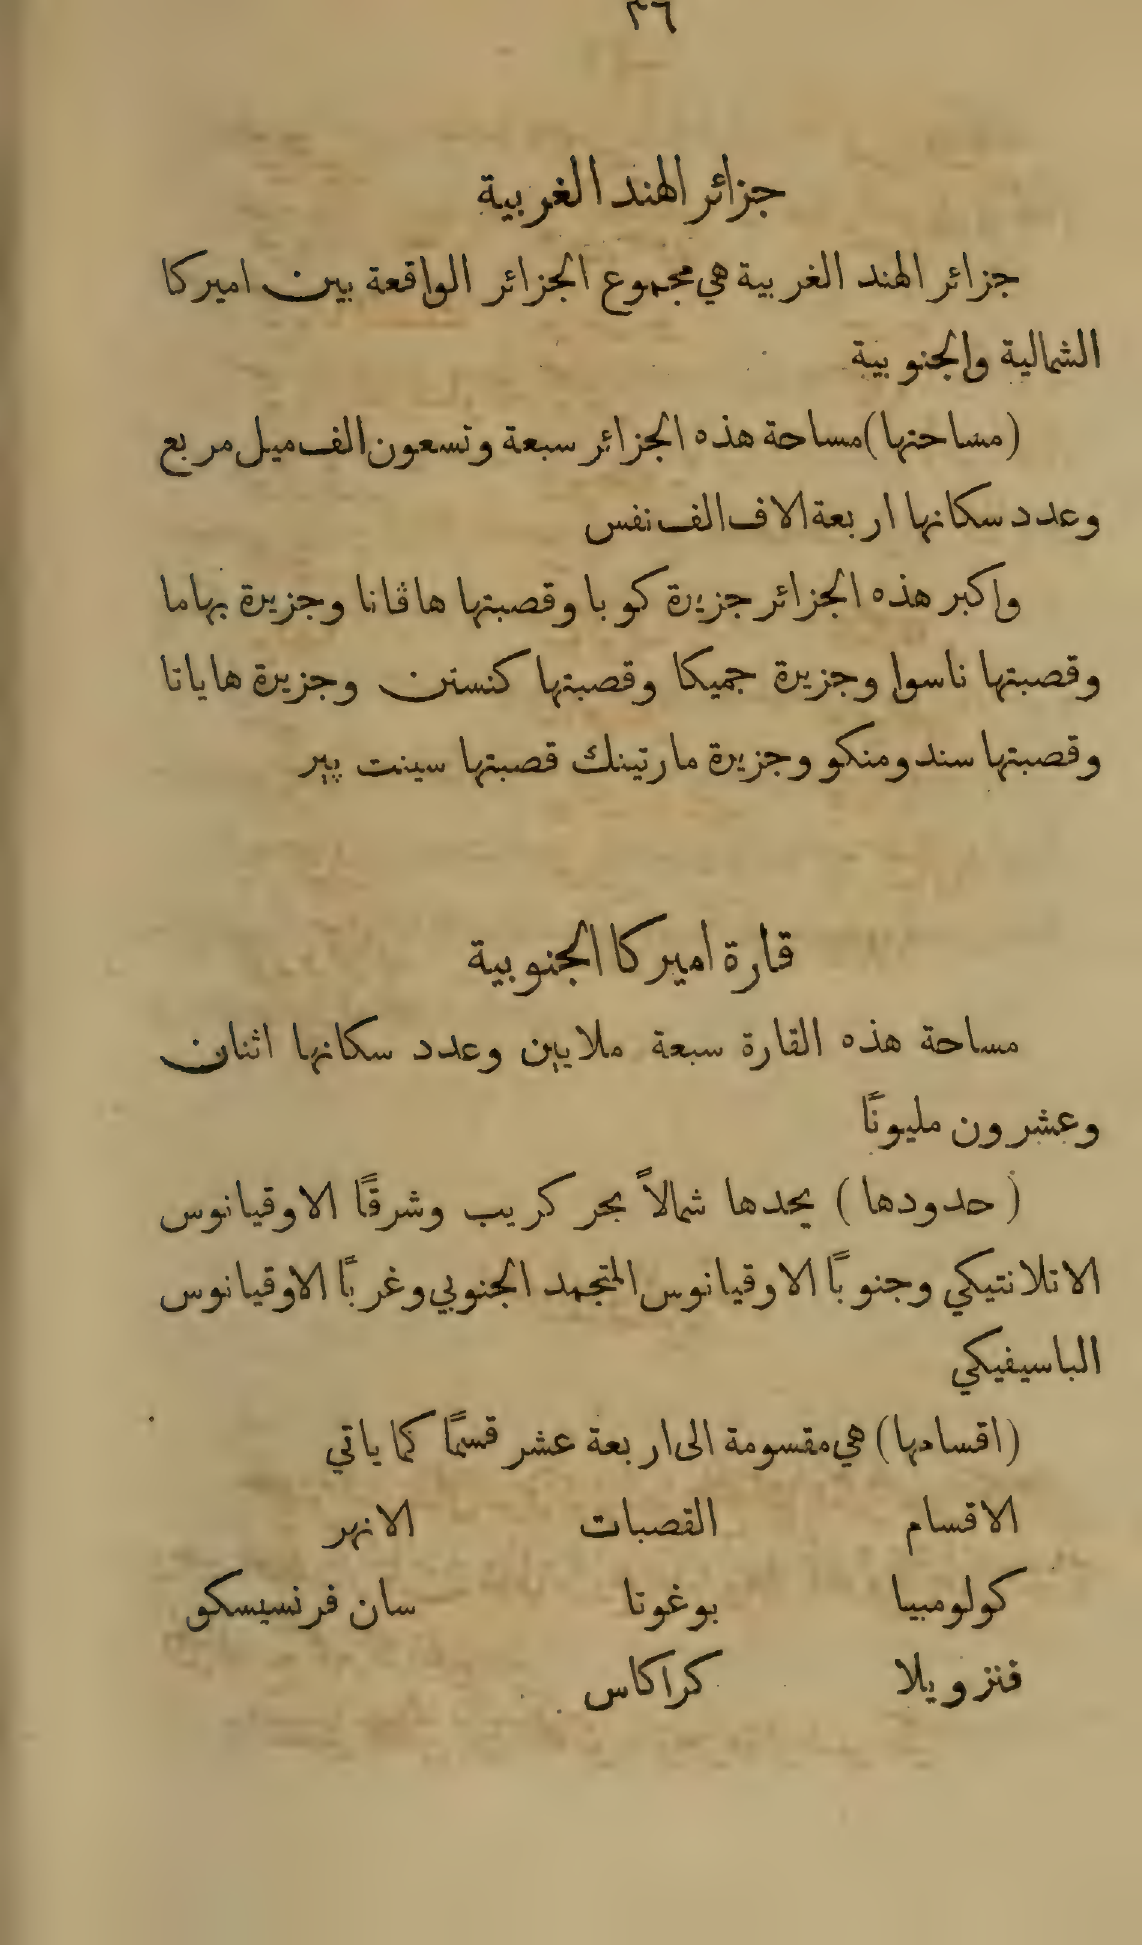 ٣٦
جزائر الهند الغربية
جزائر الهند الغربية هي مجموع الجزائر الواقعة بين اميركا
الشمالية والجنوبية
(مساحتها) مساحة هذه الجزائر سبعة وتسعون الف ميل مربع
وعدد سكانها اربعة الاف الف نفس
واكبر هذه الجزائر جزيرة كوبا وقصبتها هاڤانا وجزيرة بهاما
وقصبتها ناسوا وجزيرة جميكا وقصبتها كنستن وجزيرة هاياتا
وقصبتها سندومنكو وجزيرة مارتينك قصبتها سينت پير
قارة اميركا الجنوبية
مساحة هذه القارة سبعة ملايين وعدد سكانها اثنان
وعشرون مليونًا
(حدودها) يحدها شمالاً بحر كريب وشرقًا الاوقيانوس
الاتلانتيكي وجنوبًا الاوقيانوس المتجمد الجنوبي وغربًا الاوقيانوس
الباسيفيكي
(اقسامها) هي مقسومة الى اربعة عشر قسمًا كما ياتي
الاقسام القصبات الانهر
كولومبيا بوغوتا سان فرنسيسكو
فنزويلا كراكاس